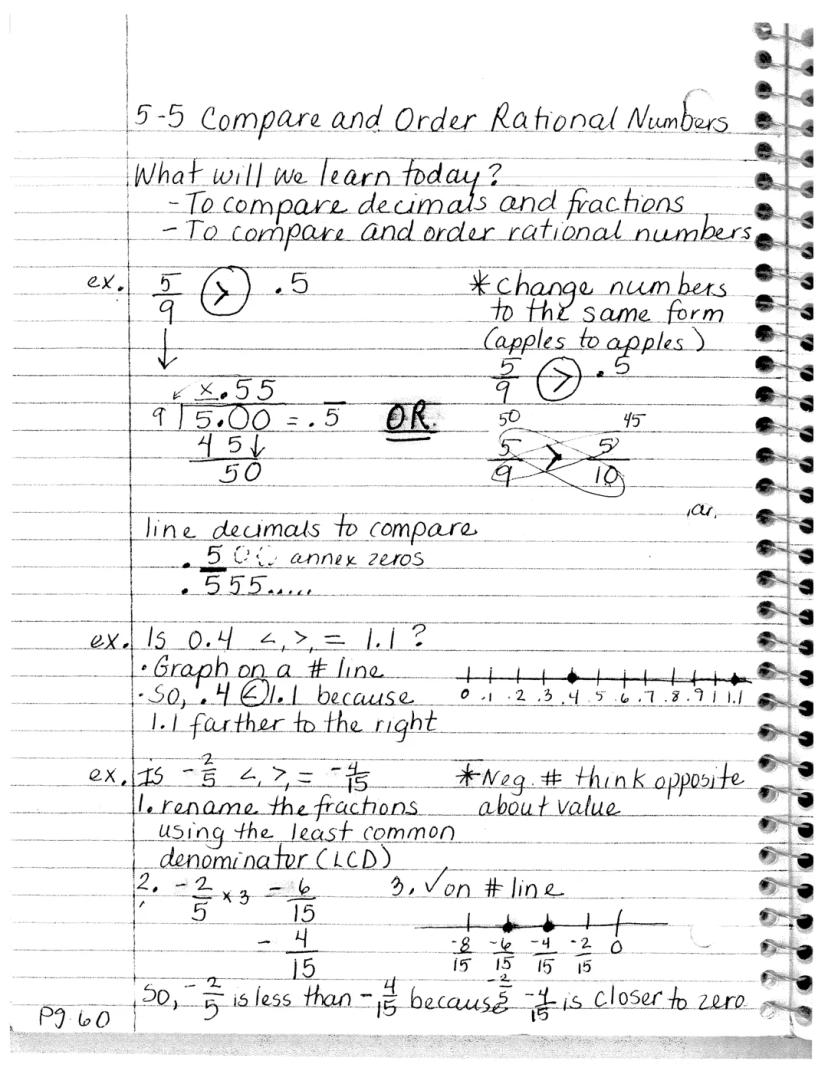 5-5 Compare and Order Rational Numbers
What will we learn today?
- To compare decimals and fractions
- To compare and order rational numbers
ex. 5/9 > .5
* Change numbers
to the same form
(apples to apples)
5/9 > .5
x.55
9 5.00 = .5̅ OR
45
50
50 45
5/9 > 5/10
line decimals to compare
.500 annex zeros
.555.....
ex. Is 0.4 <, >, = 1.1 ?
• Graph on a # line
0 .1 .2 .3 .4 .5 .6 .7 .8 .9 1 1.1
• So, .4 < 1.1 because
1.1 farther to the right
ex. Is -2/5 <, >, = -4/15
* Neg. # think opposite
about value
1. rename the fractions
using the least common
denominator (LCD)
2. -2/5 x 3 - 6/15
- 4/15
3. ✓ on # line
-8/15 -6/15 -4/15 -2/15 0
-2/5
So, -2/5 is less than -4/15 because -4/15 is closer to zero
pg 60